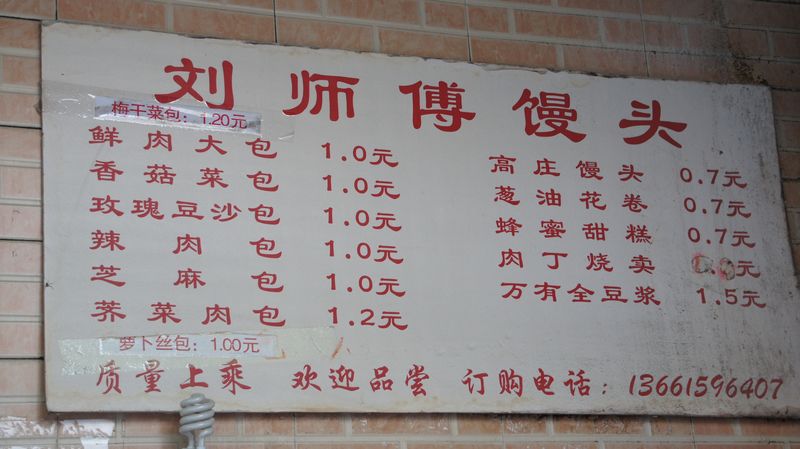 刘师傅馒头
梅干菜包：1.20元
鲜肉大包 1.0元
香菇菜包 1.0元
玫瑰豆沙包 1.0元
辣肉包 1.0元
芝麻包 1.0元
荠菜肉包 1.2元
萝卜丝包：1.00元
高庄馒头 0.7元
葱油花卷 0.7元
蜂蜜甜糕 0.7元
肉丁烧卖 元
万有全豆浆 1.5元
质量上乘 欢迎品尝 订购电话：13661596407